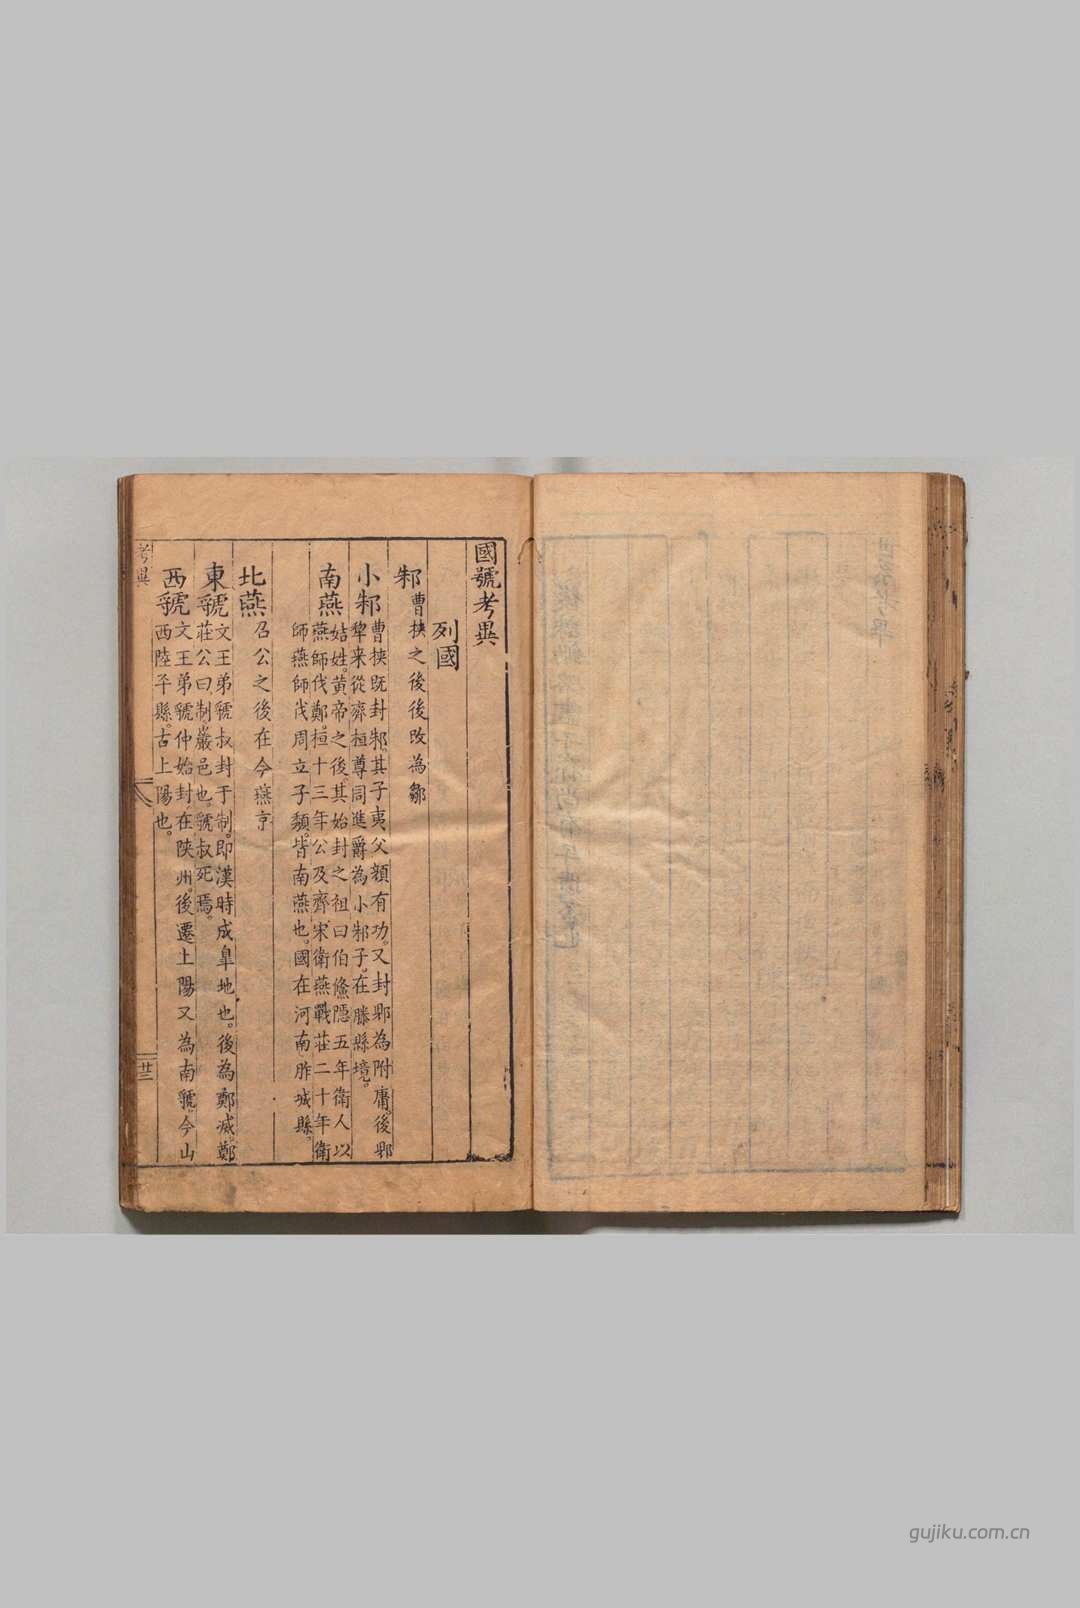 國號考異
列國
邾
曹挾之後後改為鄒
小邾
曹挾既封邾。其子夷父顏有功。又封郳為附庸。後郳
犂来從齊桓尊周進爵為小邾子。在滕縣境。
南燕
姞姓。黃帝之後。其始封之祖曰伯鯈隱五年衛人以
燕師伐鄭。桓十三年公及齊宋衛燕戰莊二十年衛
師燕師伐周立子頹。皆南燕也。國在河南胙城縣。
北燕
召公之後在今燕京
東虢
文王弟虢叔封于制。即漢時成皐地也。後為鄭滅。鄭
莊公曰。制。巖邑也。虢叔死焉。
西虢
文王弟虢仲始封。在陕州。後遷上陽又為南虢。今山
西陸平縣。古上陽也。
考異
廿三
gujiku.com.cn